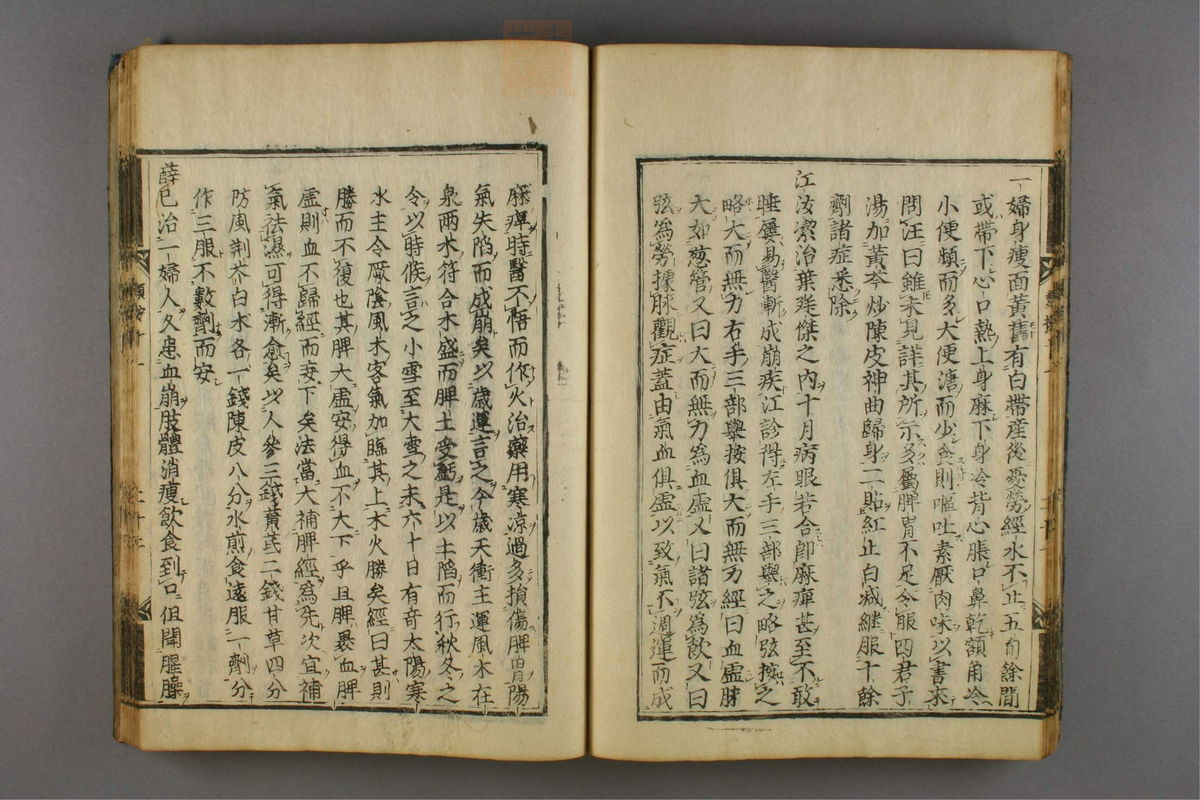 一婦身瘦面黃舊有白帶產後憂勞經水不止五旬餘間
或帶下心口熱上身麻下身冷背心脹口鼻乾額角冷
小便頻而多大便溏而少食則嘔吐素厭肉味以書來
問汪曰雖未見詳其所示多屬脾胃不足令服四君子
湯加黃芩炒陳皮神曲歸身二貼紅止白減繼服十餘
劑諸症悉除
江汝潔治葉廷傑之內十月病眼若合即麻痺甚至不敢
睡屢易醫漸成崩疾江診得左手三部舉之略弦按之
略大而無力右手三部舉按俱大而無力經曰血虛脉
大如葱管又曰大而無力為血虛又曰諸弦為飲又曰
弦為勞據脉觀症蓋由氣血俱虛以致氣不周運而成
麻痺時醫不悟而作火治藥用寒涼過多損傷脾胃陽
氣失陷而成崩矣以歲運言之今歲天衝主運風木在
泉兩木符合木盛而脾土受虧是以土陷而行秋冬之
令以時候言之小雪至大雪之末六十日有奇太陽寒
水主令厥陰風木客氣加臨其上木火勝矣經曰甚則
勝而不復也其脾大虛安得血不大下乎且脾裹血脾
虛則血不歸經而妄下矣法當大補脾經為先次宜補
氣祛濕可得漸愈矣以人參三錢黃芪二錢甘草四分
防風荊芥白朮各一錢陳皮八分水煎食遠服一劑分
作三服不數劑而安
薛己治一婦人久患血崩肢體消瘦飲食到口但聞腥臊